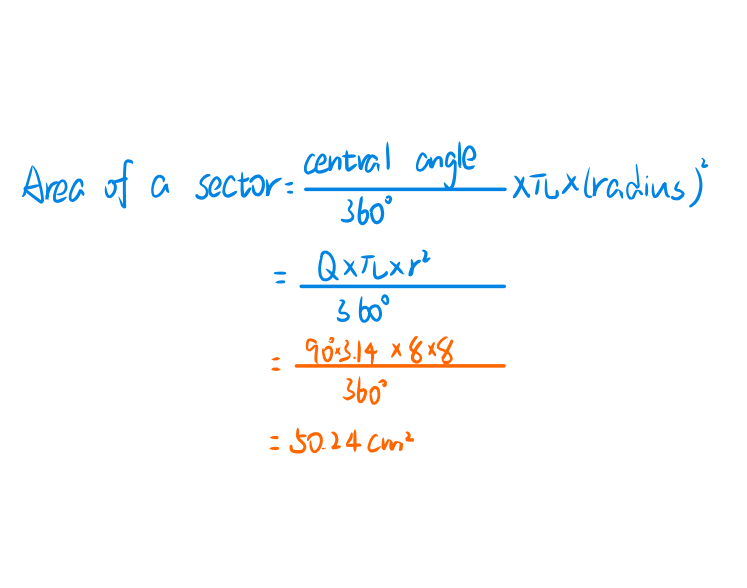 Area of a sector = central angle / 360° × π × (radius)²
= Q × π × r² / 360°
= 90° × 3.14 × 8 × 8 / 360°
= 50.24 cm²